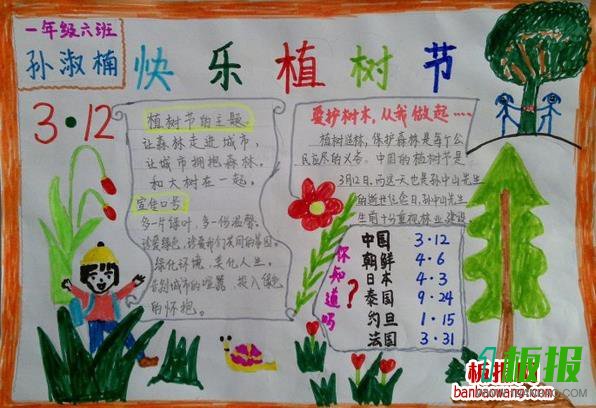 一年级六班
孙淑楠
快乐植树节
3·12
植树节的主题
让森林走进城市,
让城市拥抱森林,
和大树在一起,
宣传口号
多一片绿叶,多一份温馨,
珍爱绿色,珍爱我们共同的家园。
绿化环境、美化人生,
告别城市的喧嚣、投入绿色
的怀抱。
爱护树木,从我做起....
植树造林,保护森林是每个公
民应尽的义务。中国的植树节是
3月12日,而这一天也是孙中山先生
的逝世纪念日,孙中山先生
生前十分重视林业建设
你知道吗?
中国 3·12
朝鲜 4·6
日本 4·3
泰国 9·24
约旦 1·15
法国 3·31
板报网
banbaowang.com
板报